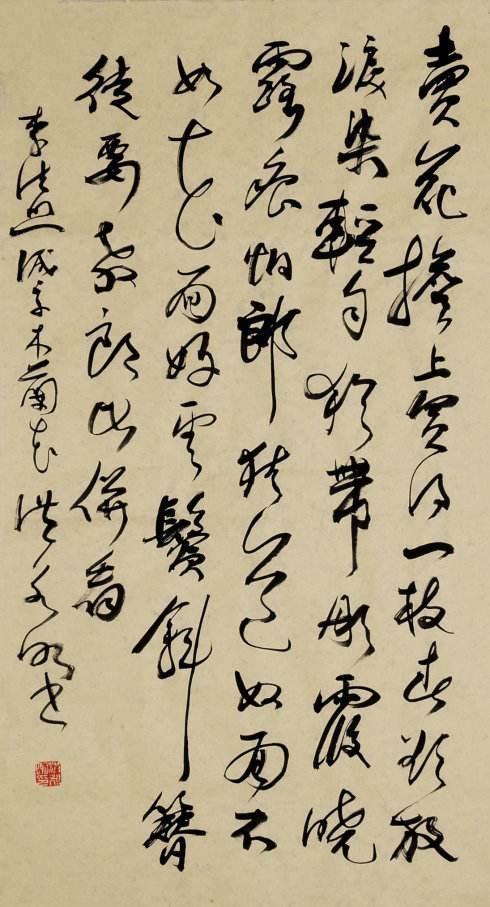 賣花擔上買得一枝春欲放
淚染輕勻猶帶彤霞曉
露痕怕郎猜道奴面不
如花面好雲鬢斜簪
徒要教郎比併看
李清照減字木蘭花 書